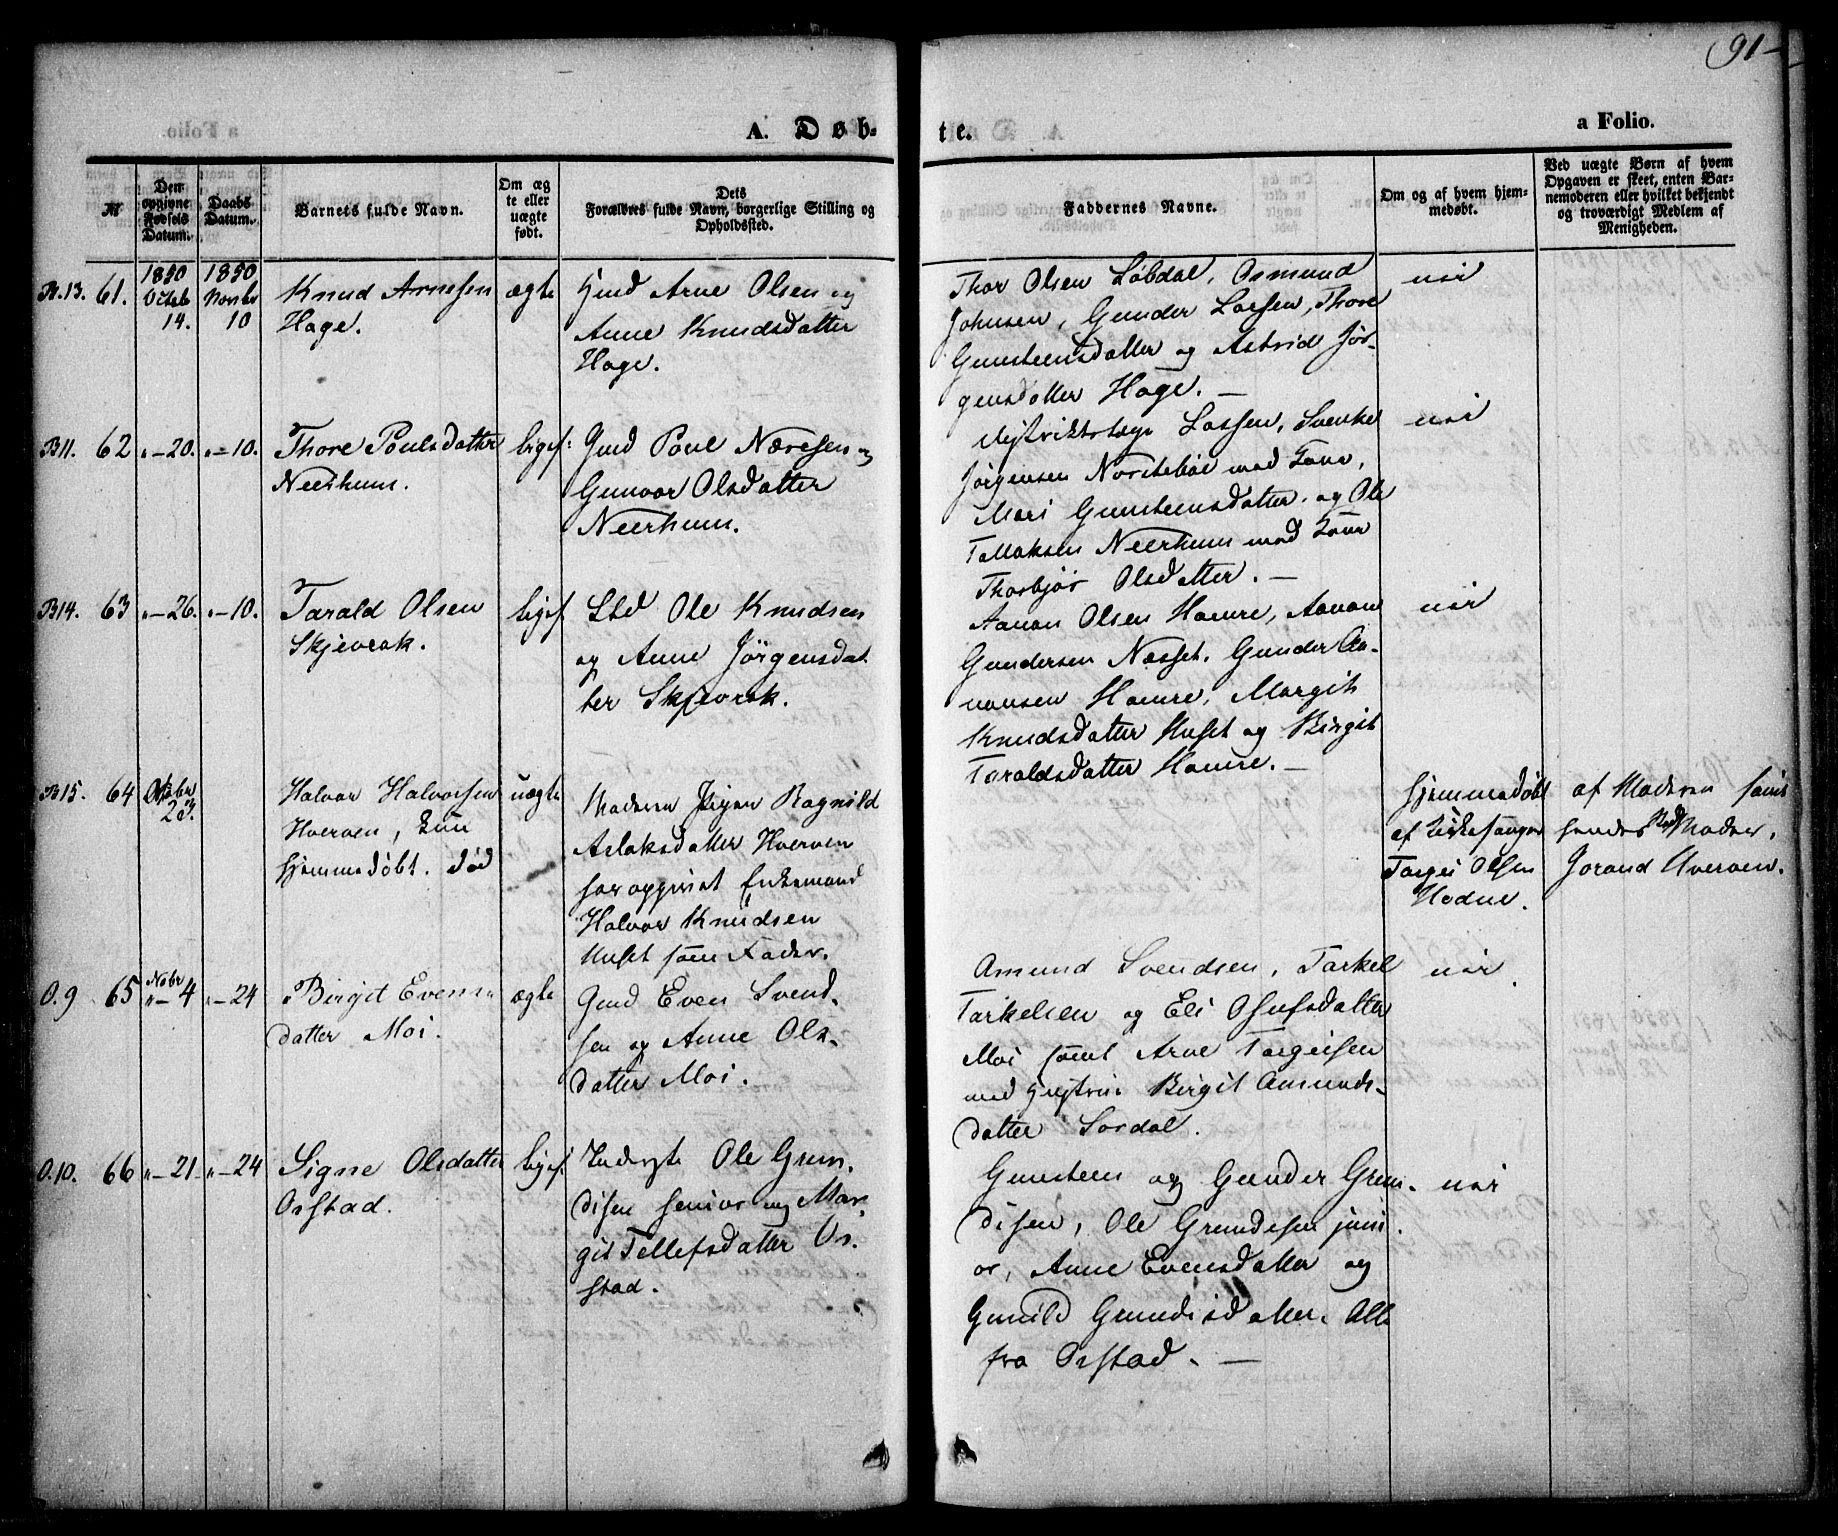 91
A. Døb-
te.
a Folio.
№
Den opgivne Fødsels Datum.
Daabs Datum.
Barnets fulde Navn.
Om æg
te eller
uægte
født.
Dets
Forældres fulde Navn, borgerlige Stilling og
Opholdssted.
Faddernes Navne.
Om og af hvem hjem-
medøbt.
Ved uægte Børn af hvem
Opgaven er skeet, enten Bar-
nemoderen eller hvilket bekjendt
og troværdigt Medlem af
Menigheden.
B.13. 61.
1850
Octob
14.
1850
Novbr
10
Knud Arnesen
Hage.
ægte
Gmd Arne Olsen og
Anne Knudsdatter
Hage.
Thor Olsen Løbdal, Osmund
Johnsen, Gunder Larsen, Thore
Gunsteensdatter og Astrid Jør-
gensdatter Hage. —
nei
B11. 62 "-20. "-10.
Thore Poulsdatter
Neerhum.
ligef:
Gmd Povl Næresen og
Gunvor Olsdatter
Neerhum.
Lassen, Svenke
Jørgensen med Kone,
Mari Gunsteensdatter. og Ole
Tallaksen Neerhum med Kone
Thorbjør Olsdatter. —
nei
B14. 63 "-26. "-10.
Tarald Olsen
Skjevrak.
ligef
Lbd Ole Knudsen
og Anne Jørgensdat
ter Skjevrak.
Aanon Olsen Homre, Aanon
Gundersen Næsset, Gunder Aa-
nonsen Homre, Margit
Knudsdatter Huset og Birgit
Taraldsdatter Homre. —
nei
B15. 64
Octobr
23.
Halvor Halvorsen
Hverven, kun
hjemmedøbt. død
uægte
Moderen Pigen Ragnild
Aslaksdatter Hverven
har opgivet Enkemand
Halvor Knudsen
Huset som Fader.
Hjemmedøbt
af Kirkesanger
Torgei Olsen
Hodne.
af Moderen samt
hendes Moder.
Jorand Hverven.
O.9 65
Nobr
"-4 "-24
Birgit Evens-
datter Moi.
ægte
Gmd Even Svend-
sen og Anne Ols-
datter Moi.
Amund Svendsen, Tarkel
Tarkelsen og Eli Osufsdatter
Moi samt Arne Torgeisen
med Hustrue Birgit Aamunds-
datter Sordal.
nei
O.10. 66 "-21 "-24
Signe Olsdatter
Orstad.
ligef.
Inderste Ole Grun-
disen senior og Mar-
git Tellefsdatter Or-
stad.
Gunsteen og Gunder Grun-
disen, Ole Grundesen juni-
or, Anne Evensdatter og
Gunild Grundisdatter. Alle
fra Orstad. —
nei